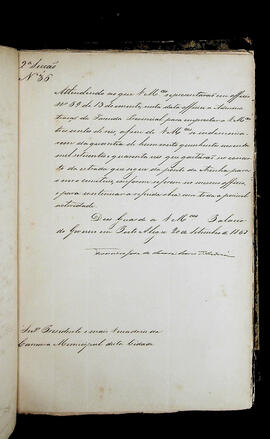 2ª Secção
Nº 36
Attendendo ao que VMces representarão em officio
nº 39 de 13 do corrente, nesta data officio a Administra
ção da Fazenda Provincial para
cento de reis, a fim de VMces se indemnisa
rem da quantia de hum conto quinhentos noventa
mil e quarenta reis que gastarão no concerto
da estrada que segue da ponte da Azenha para
o novo cemiterio, conforme referem no mesmo officio,
e para continuar a referida obra com toda a possivel
actividade.
Deos Guarde a VMces Palacio
do Governo em Porto Alegre 20 de Setembro de 1862
Snrs. Presidente e mais Vereadores da
Camara Municipal desta Cidade